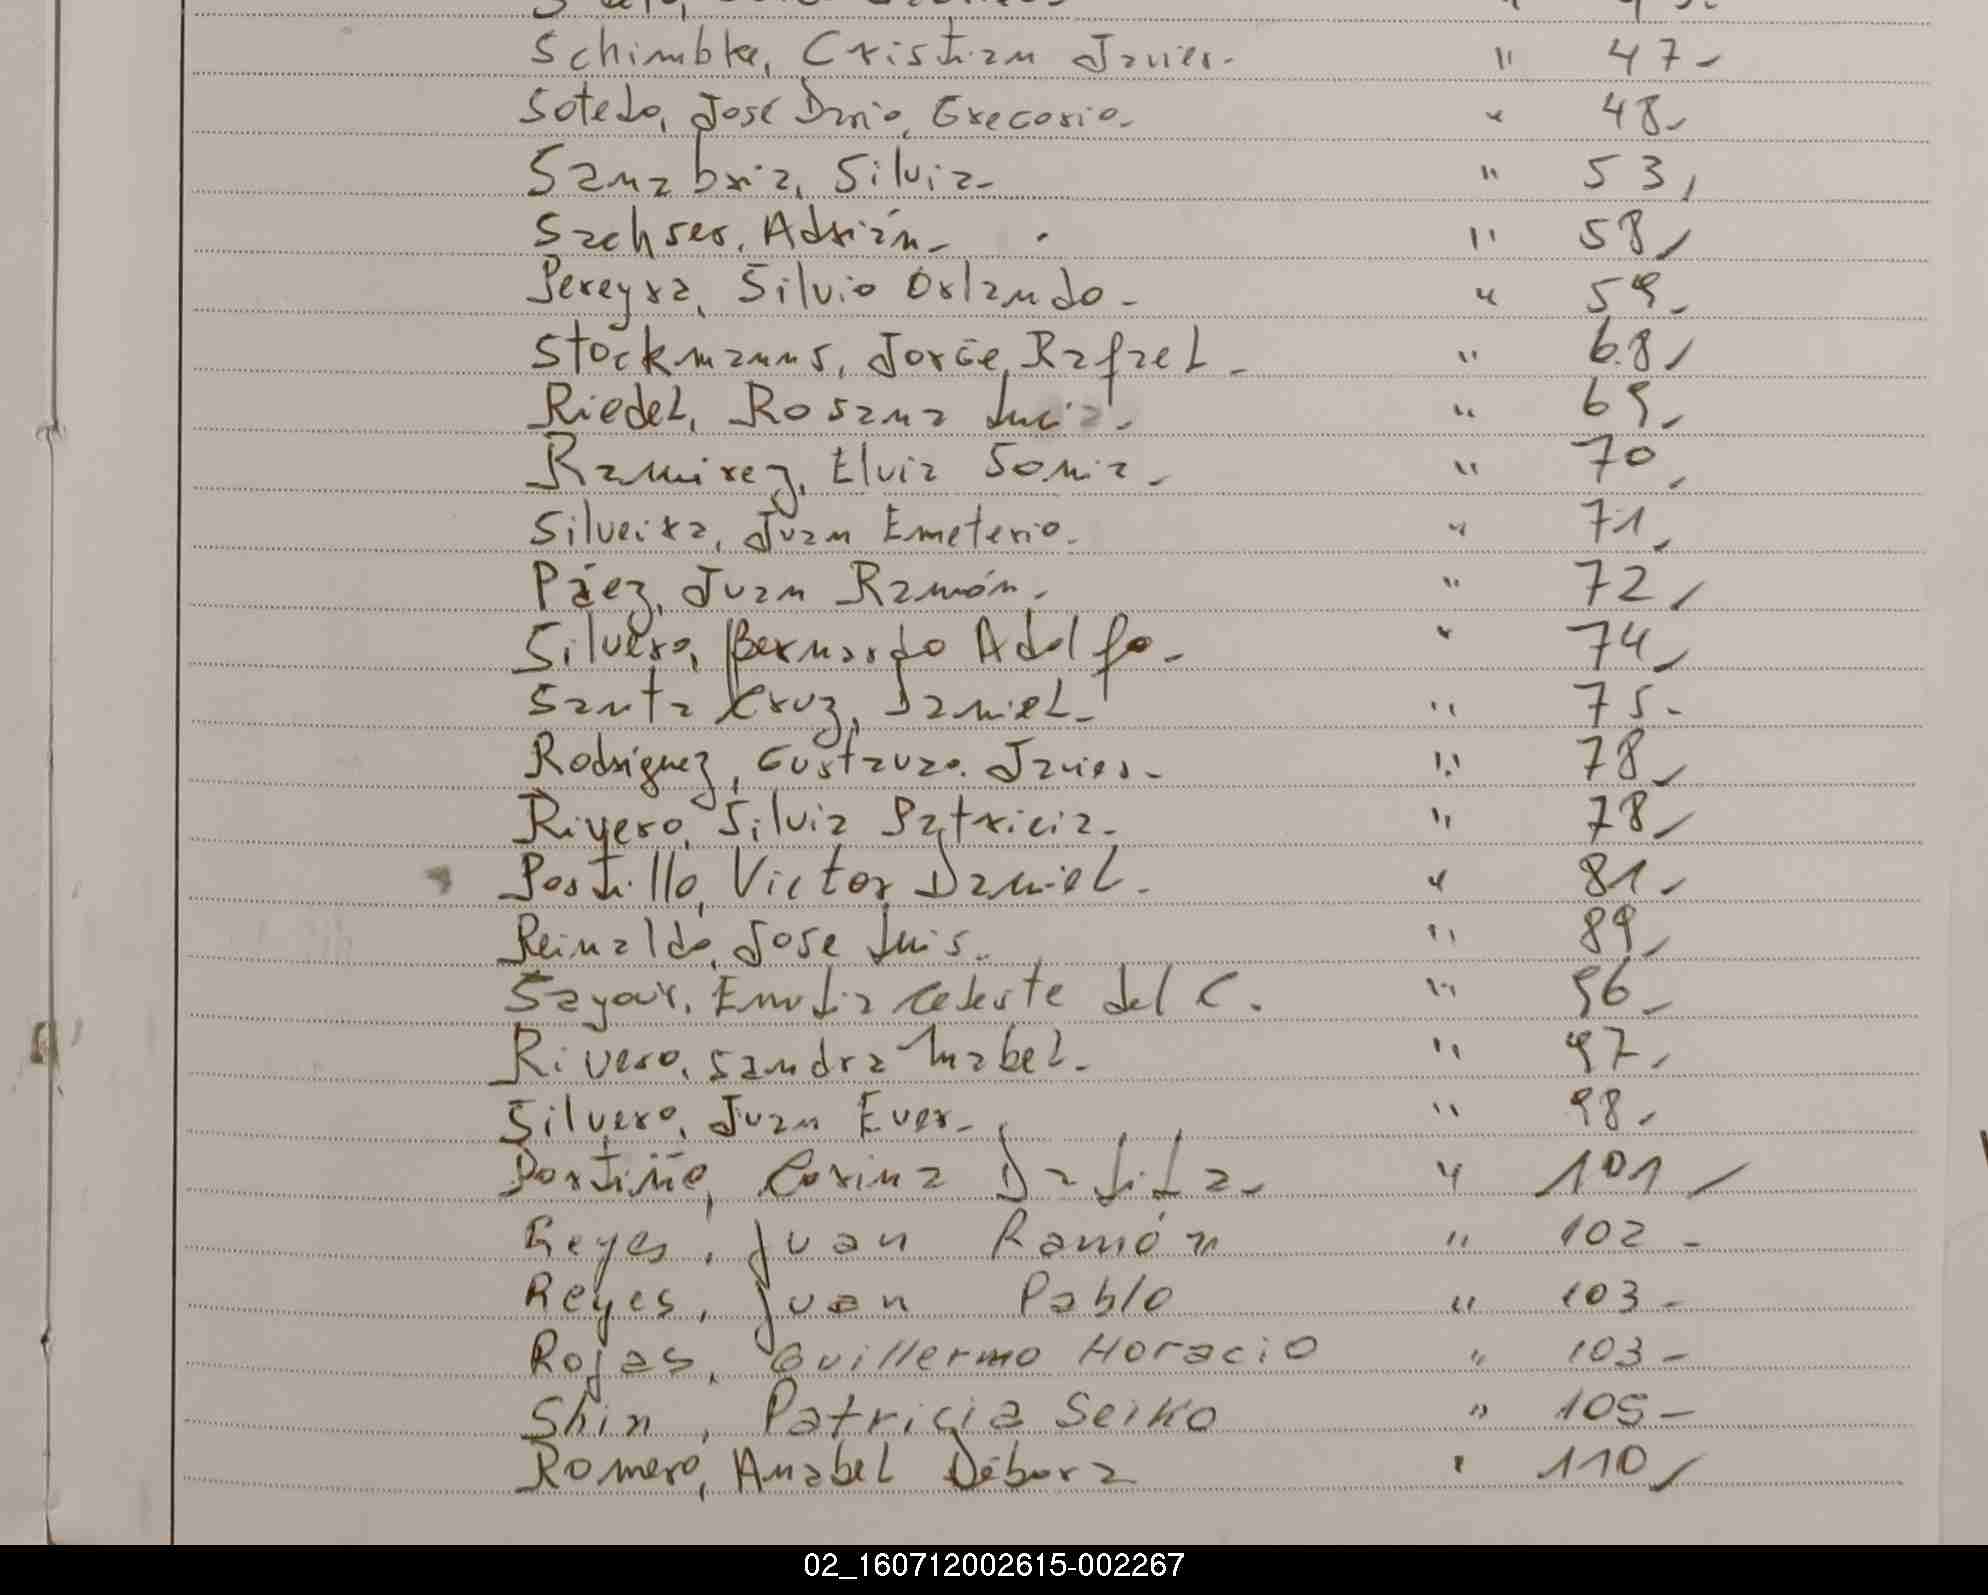 Schimbke, Cristian Javier. " 47-
Sotelo, José Dario, Grecorio. " 48-
Sanabria, Silvia- " 53,
Sachser, Adrián- " 58,
Pereyra, Silvio Orlando- " 59-
Stockmanns, Jorge Rafael- " 68,
Riedel, Rosana Lucia. " 69,
Ramirez, Elvia Sonia. " 70,
Silveira, Juan Emeterio. " 71,
Páez, Juan Ramón. " 72,
Silvero, Bernardo Adolfo- " 74,
Santa Cruz, Daniel- " 75-
Rodríguez, Gustavo Javier- " 78,
Rivero, Silvia Patricia- " 78,
Portillo, Victor Daniel. " 81-
Reinaldo, Jose Luis. " 89,
Sayour, Emilia Celeste del C. " 96-
Rivero, Sandra Mabel- " 97,
Silvero, Juan Ever- " 98,
Portiño, Corina Dalila- " 101,
Reyes, Juan Ramón " 102-
Reyes, Juan Pablo " 103-
Rojas, Guillermo Horacio " 103-
Shin, Patricia Seiko " 105-
Romero, Anabel Débora " 110,
02_160712002615-002267